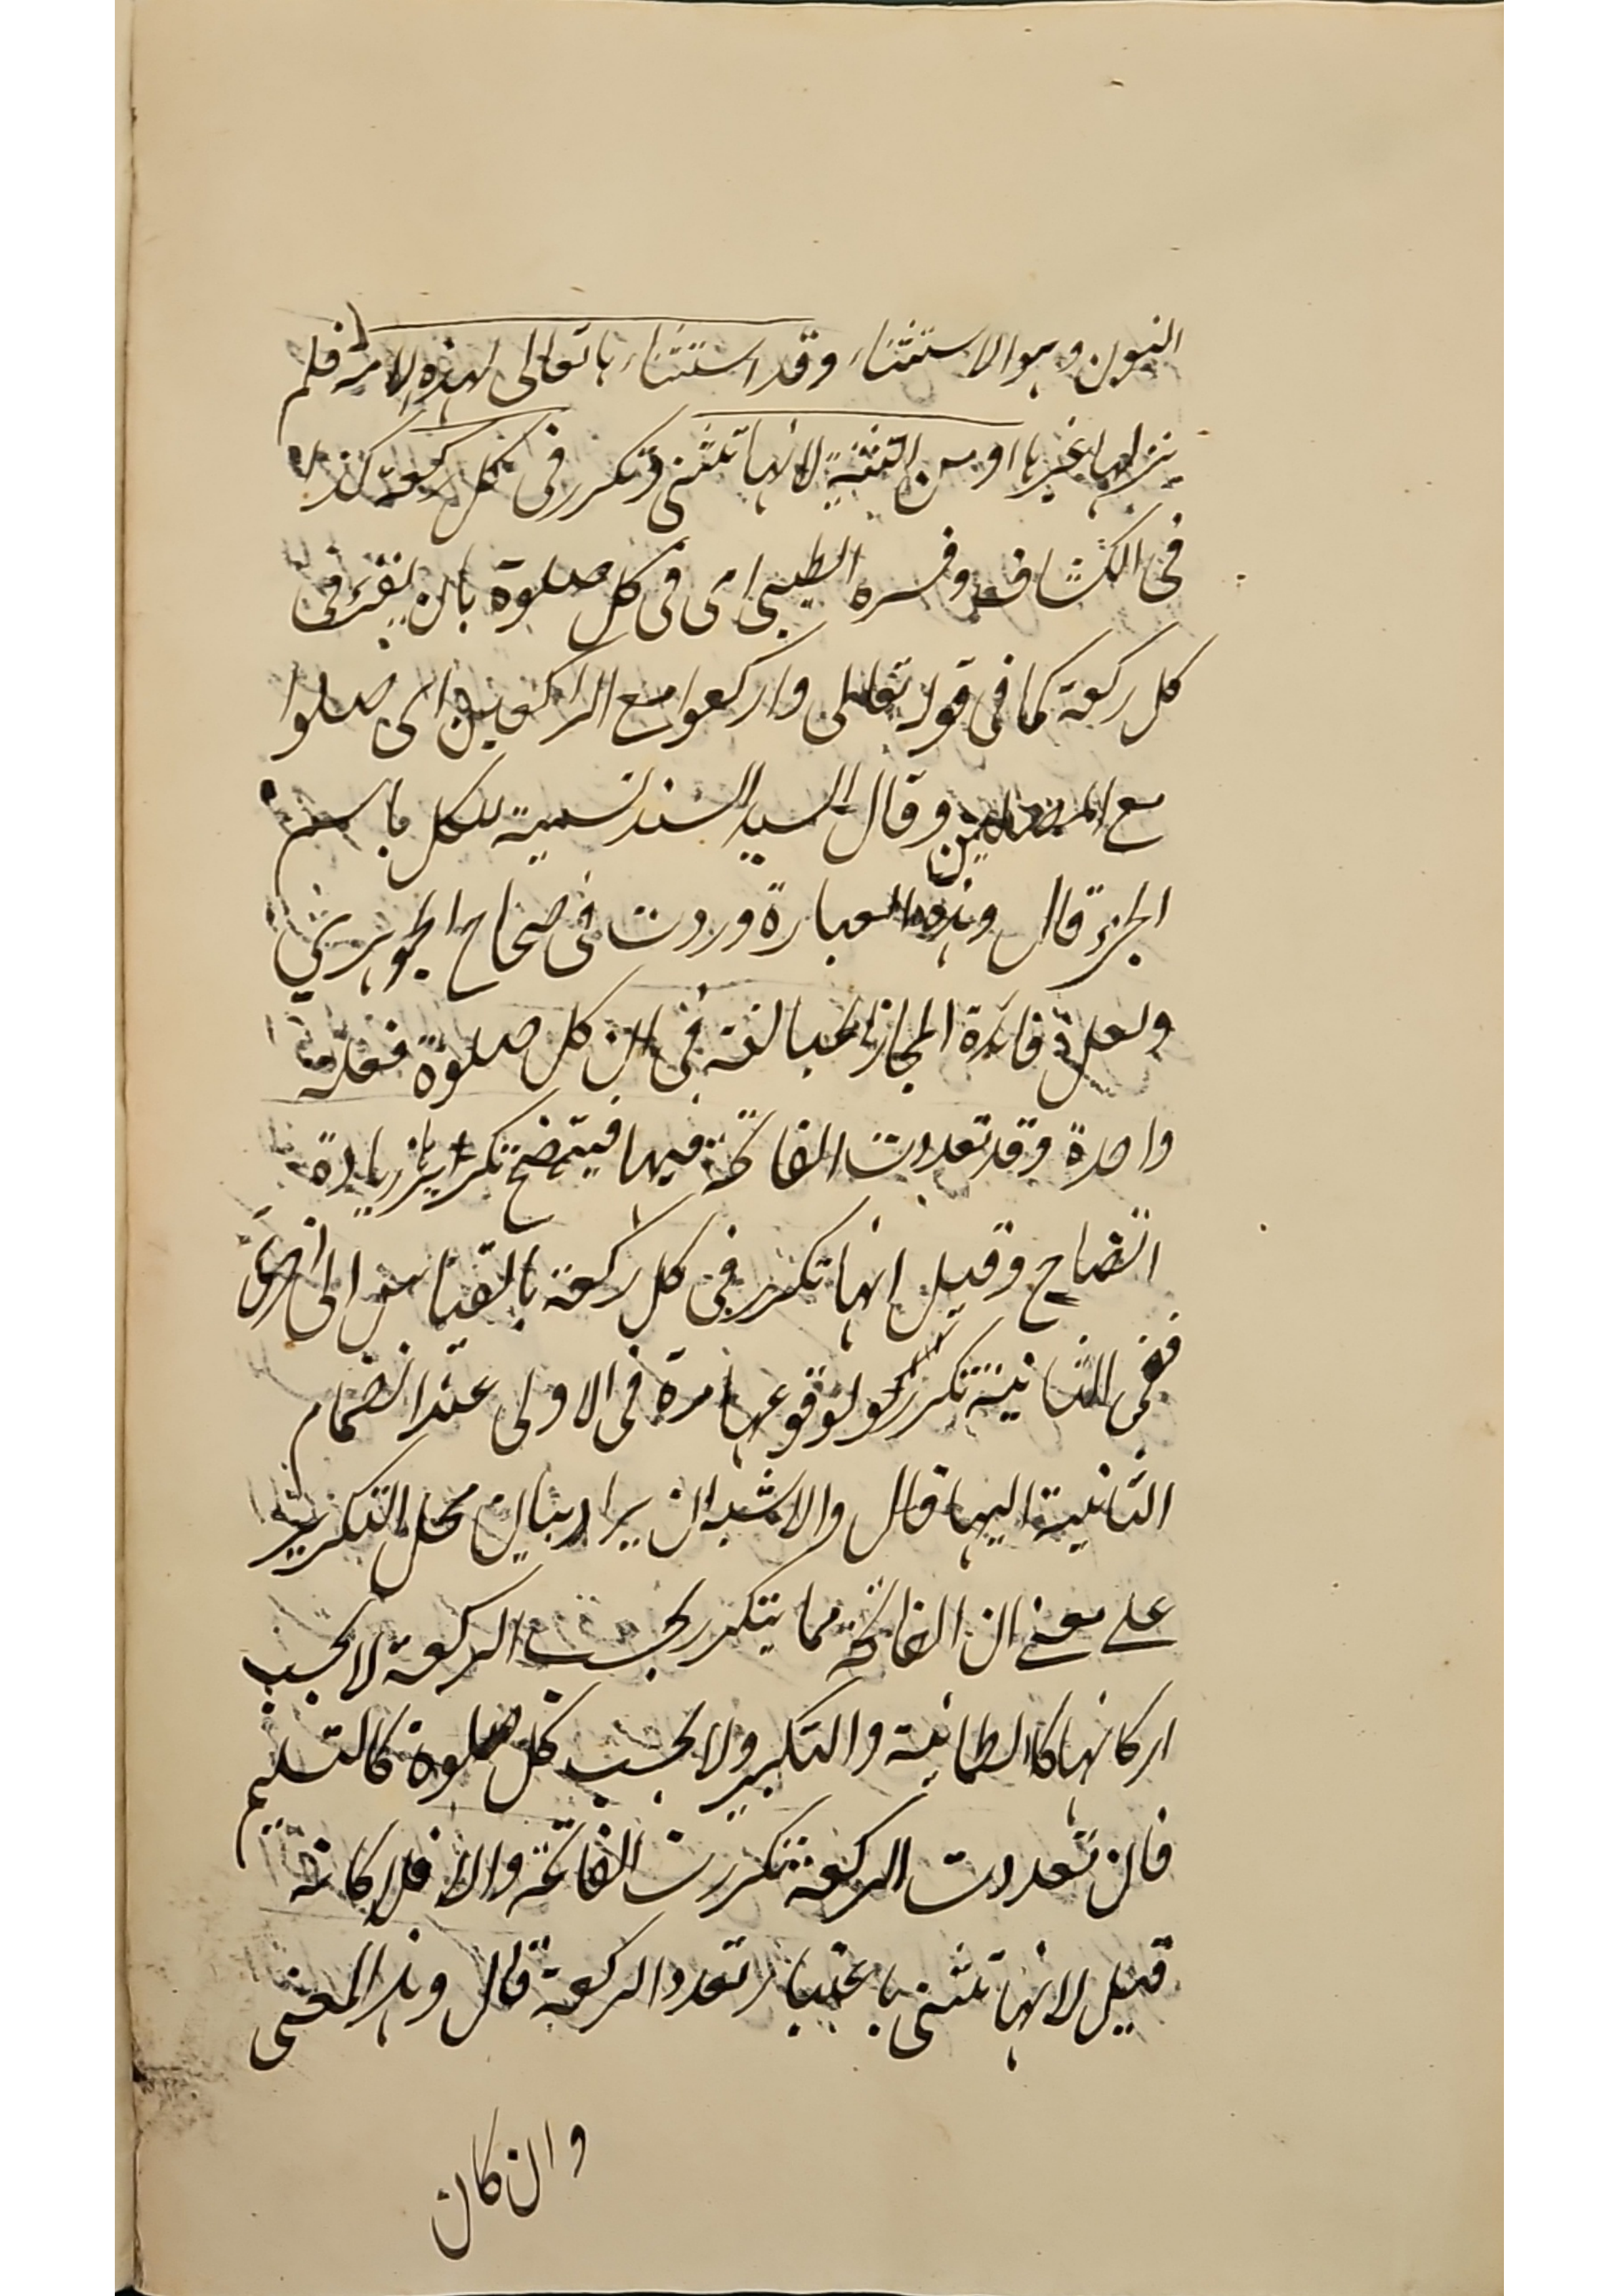 النون وهو الاستثناء وقد استثناها تعالى لهذه الامة فلم
ينزلها غيرها او من التثنية لانها تثنى وتكرر فى كل ركعة كذا
فى الكشاف وفسره الطيبى اى فى كل صلوة بان يقرء فى
كل ركعة كما فى قوله تعالى واركعوا مع الراكعين اى صلوا
مع المصلين وقال السيد السند تسمية للكل باسم
الجزء قال وهذه العبارة وردت فى صحاح الجوهرى
ولعل فائدة المجاز المبالغة فى ان كل صلوة فعلة
واحدة وقد تعددت الفاتحة فيها فيتضح تكريرها زيادة
اتضاح وقيل انها تكرر فى كل ركعة بالقياس الى اخرى
ففى الثانية تتكرر لوقوعها مرة فى الاولى عند انضمام
الثانية اليها قال والاشبه ان يراد بيان محل التكرير
على معنى ان الفاتحة مما يتكرر بحسب الركعة لا بحسب
اركانها كالطمانينة والتكبير ولا بحسب كل صلوة كالتسليم
فان تعددت الركعة تكررت الفاتحة والا فلا كانه
قيل لانها تثنى باعتبار تعدد الركعة قال وهذا المعنى
وان كان